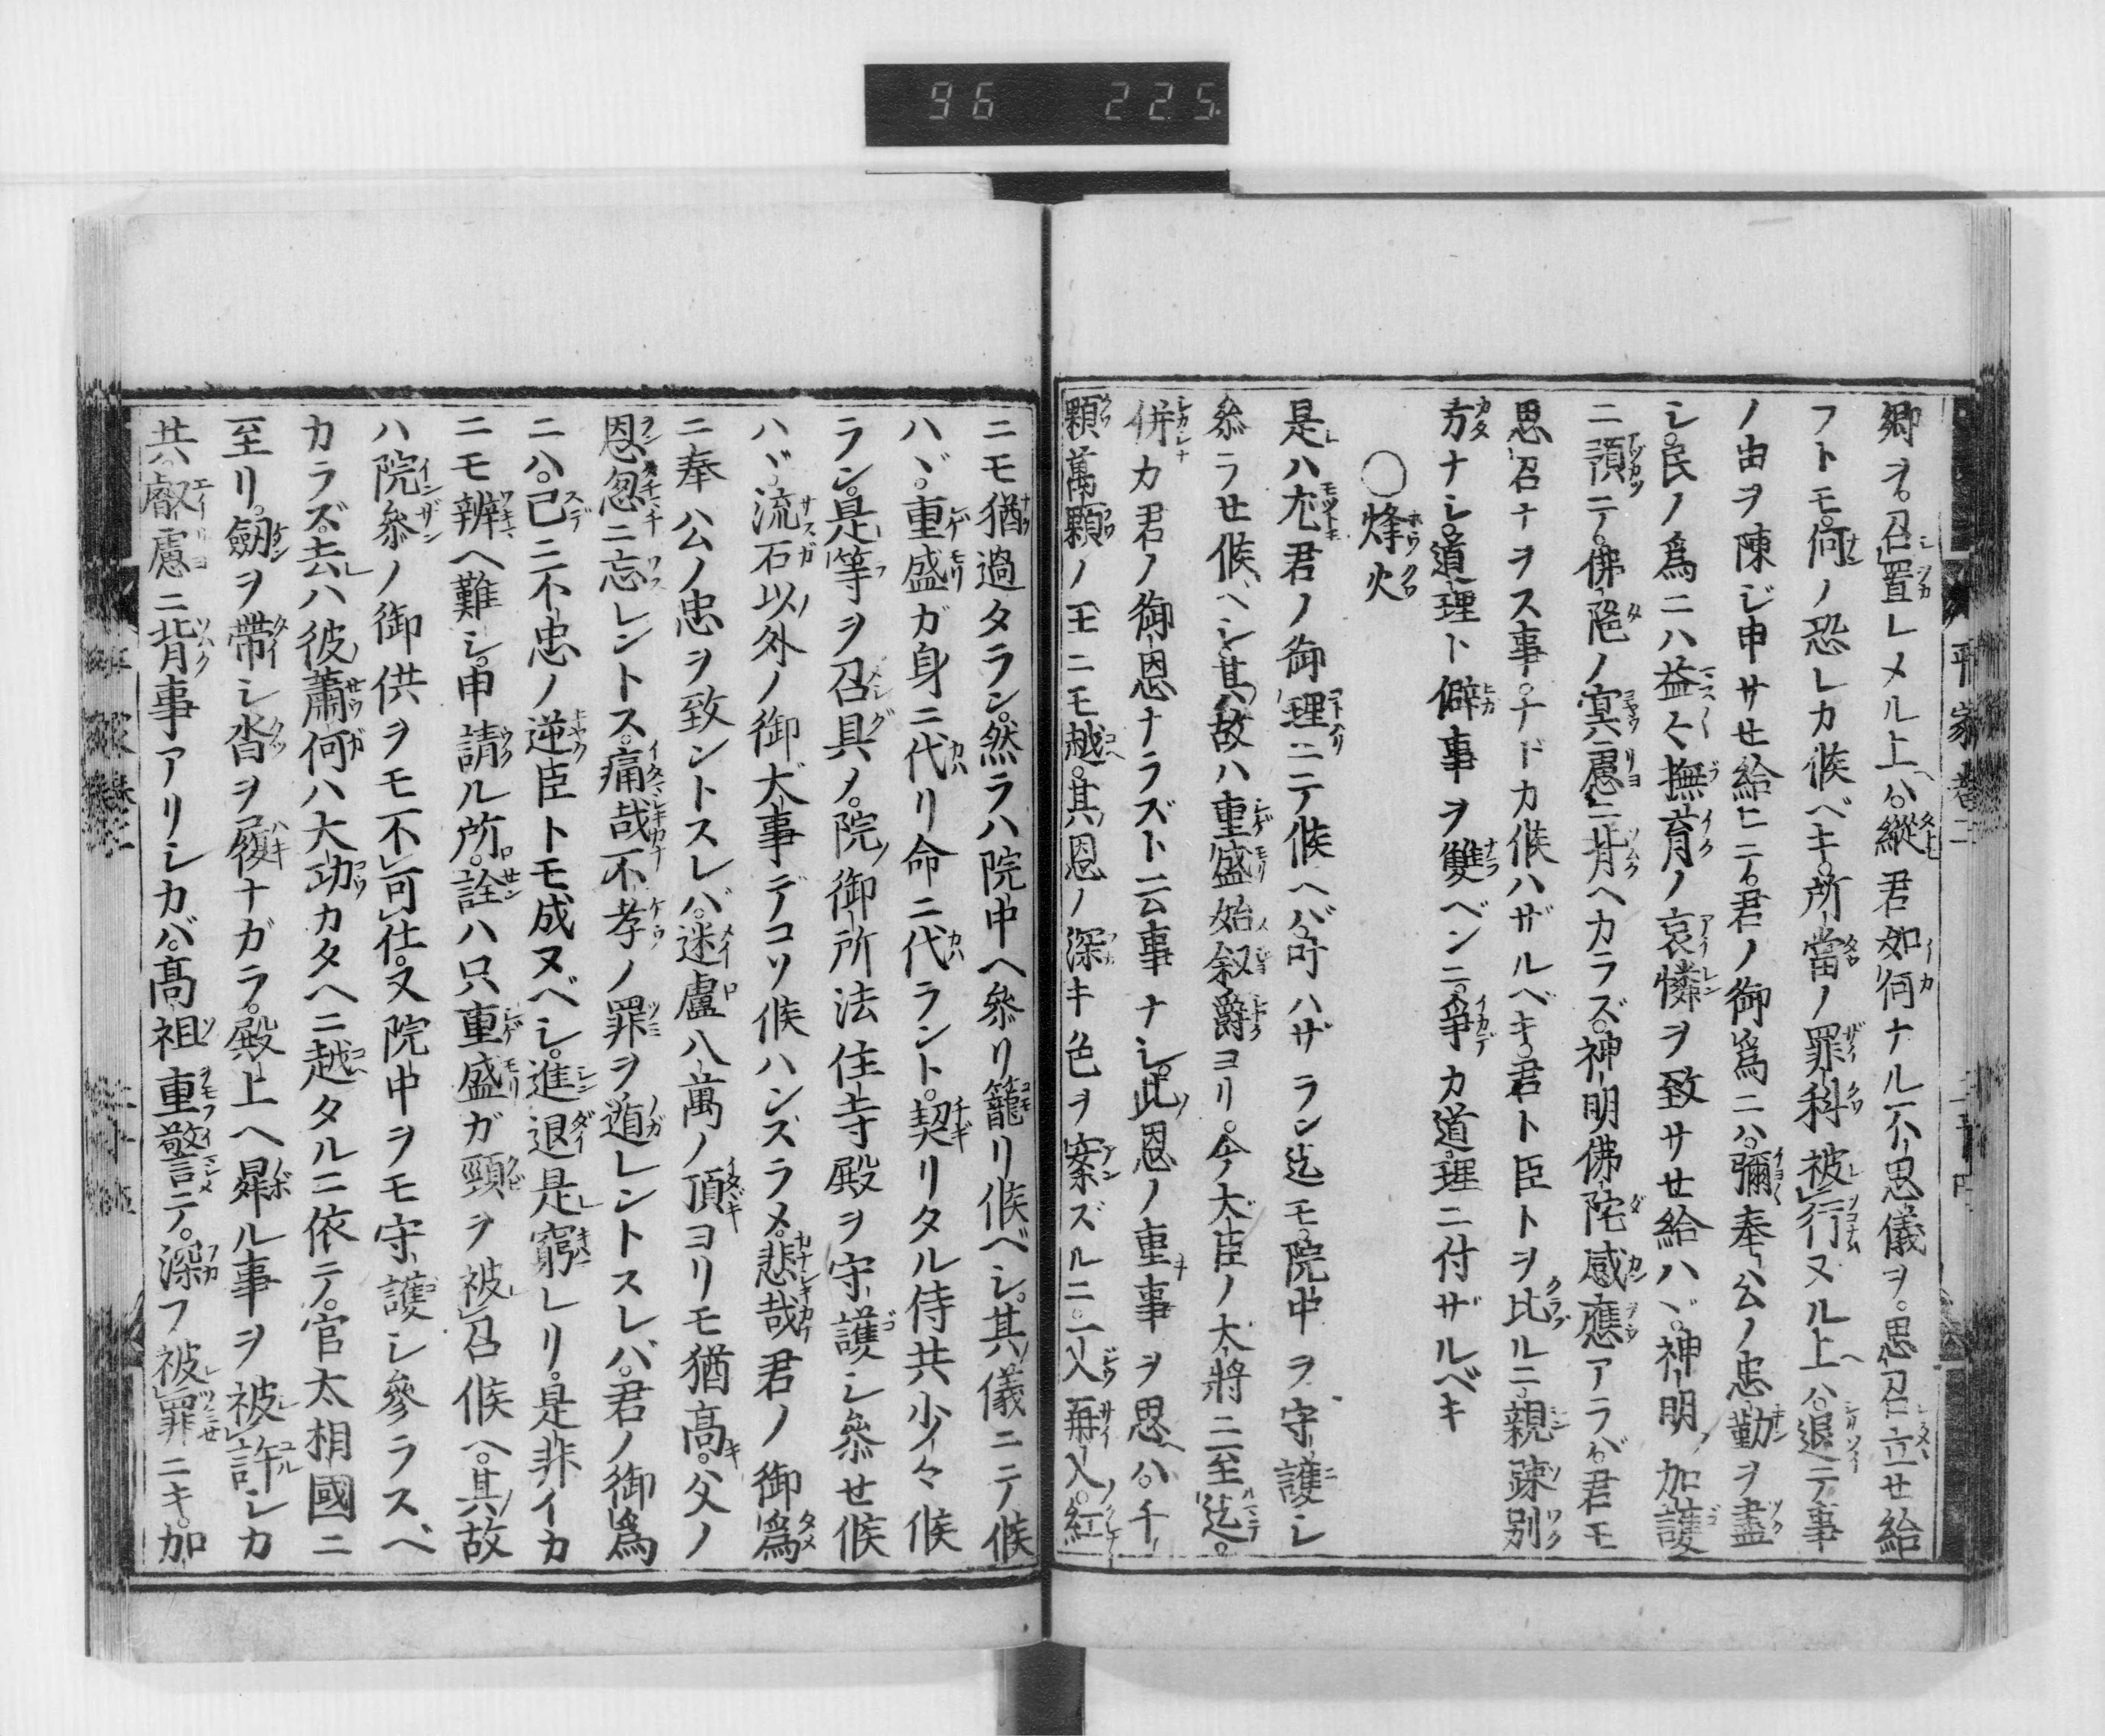 96 225
卿ヲ。召置レメル上ハ。縱君如何ナル不思儀ヲ。思召立せ給
フトモ。何ノ恐レカ候ベキ。所當ノ罪科被行ヌル上ハ。退テ事
ノ由ヲ陳ジ申サせ給ヒテ。君ノ御爲ニハ。彌奉公ノ忠勤ヲ盡
シ。民ノ爲ニハ益々撫育ノ哀憐ヲ致サせ給ハヾ。神明ノ加護
ニ預テ。佛陀ノ冥慮ニ背ヘカラズ。神明佛陀感應アラバ君モ
思召ナヲス事。ナドカ候ハザルベキ。君ト臣トヲ比ルニ。親疎別
方ナシ。道理ト僻事ヲ雙ベンニ。爭カ道理ニ付ザルベキ
○烽火
是ハ尤君ノ御理ニテ候ヘバ。叶ハザラン迄モ。院中ヲ守護シ
參ラせ候ヘシ。其故ハ重盛始叙爵ヨリ。今大臣ノ大將ニ至迄。
併カ君ノ御恩ナラズト云事ナシ。此恩ノ重事ヲ思ヘハ。千
顆萬顆ノ玉ニモ越。其恩ノ深キ色ヲ案ズルニ。一入再入。紅
ニモ猶過タラン。然ラハ院中ヘ參リ籠リ候ベシ。其儀ニテ候
ハヾ。重盛ガ身ニ代リ命ニ代ラント。契リタル侍共少々候
ラン。是等ヲ召具メ。院御所法住寺殿ヲ守護シ參せ候
ハヾ。流石以外ノ御大事デコソ候ハンズラメ。悲哉君ノ御爲
ニ奉公ノ忠ヲ致ントスレバ。迷盧八萬ノ頂ヨリモ猶高。父ノ
恩忽ニ忘レントス。痛哉不孝ノ罪ヲ遁レントスレバ。君ノ御爲
ニハ。已ニ不忠ノ逆臣トモ成ヌベシ。進退是窮レリ。是非イカ
ニモ辨ヘ難シ。申請ル所。詮ハ只重盛ガ頸ヲ被召候ヘ。其故
ハ院參ノ御供ヲモ不可仕。又院中ヲモ守護シ參ラスベ
カラズ。去ハ彼蕭何ハ大功カタヘニ越タルニ依テ。官太相國ニ
至リ。劔ヲ帶シ沓ヲ履ナガラ。殿上ヘ昇ル事ヲ被許シカ
共。叡慮ニ背事アリシカバ。高祖重警テ。深フ被罪ニキ。加